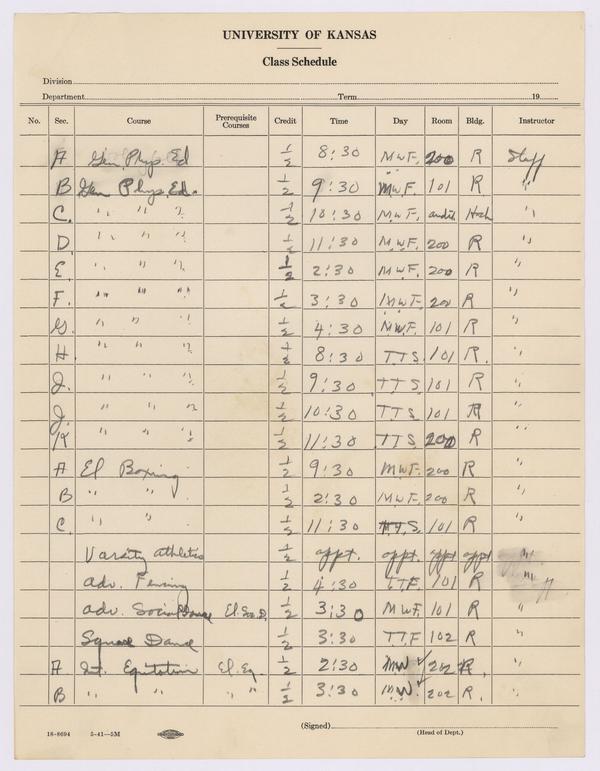 UNIVERSITY OF KANSAS
Class Schedule
Division
Department Term 19
No. Sec. Course Prerequisite Courses Credit Time Day Room Bldg. Instructor
A Gen. Phys. Ed ½ 8:30 M W F. 200 R Staff
B Gen Phys. Ed. ½ 9:30 M W F. 101 R "
C. " " " ½ 10:30 M W F. audit Hoch "
D. " " " ½ 11:30 M W F. 200 R "
E. " " " ½ 2:30 M W F. 200 R "
F. " " " ½ 3:30 M W F. 200 R "
G. " " " ½ 4:30 M W F. 101 R "
H " " " ½ 8:30 T T S. 101 R. "
J. " " " ½ 9:30 T T S 101 R "
J. " " " ½ 10:30 T T S 101 R "
K " " " ½ 11:30 T T S 200 R "
A El Boxing ½ 9:30 M W F. 200 R "
B " " ½ 2:30 M W F. 200 R "
C. " " ½ 11:30 T T S. 101 R "
Varsity athletics ½ appt. appt. appt appt "
adv. Fencing ½ 4:30 T T F. 101 R "
adv. Social Dance El. Soc. D. ½ 3:30 M W F. 101 R "
Square Dance ½ 3:30 T T F 102 R "
A. Int. Equitation El. Eq. ½ 2:30 M W ✓ 202 R. "
B " " " " ½ 3:30 M W ✓ 202 R. "
(Signed)
18-8694 5-41—5M (Head of Dept.)